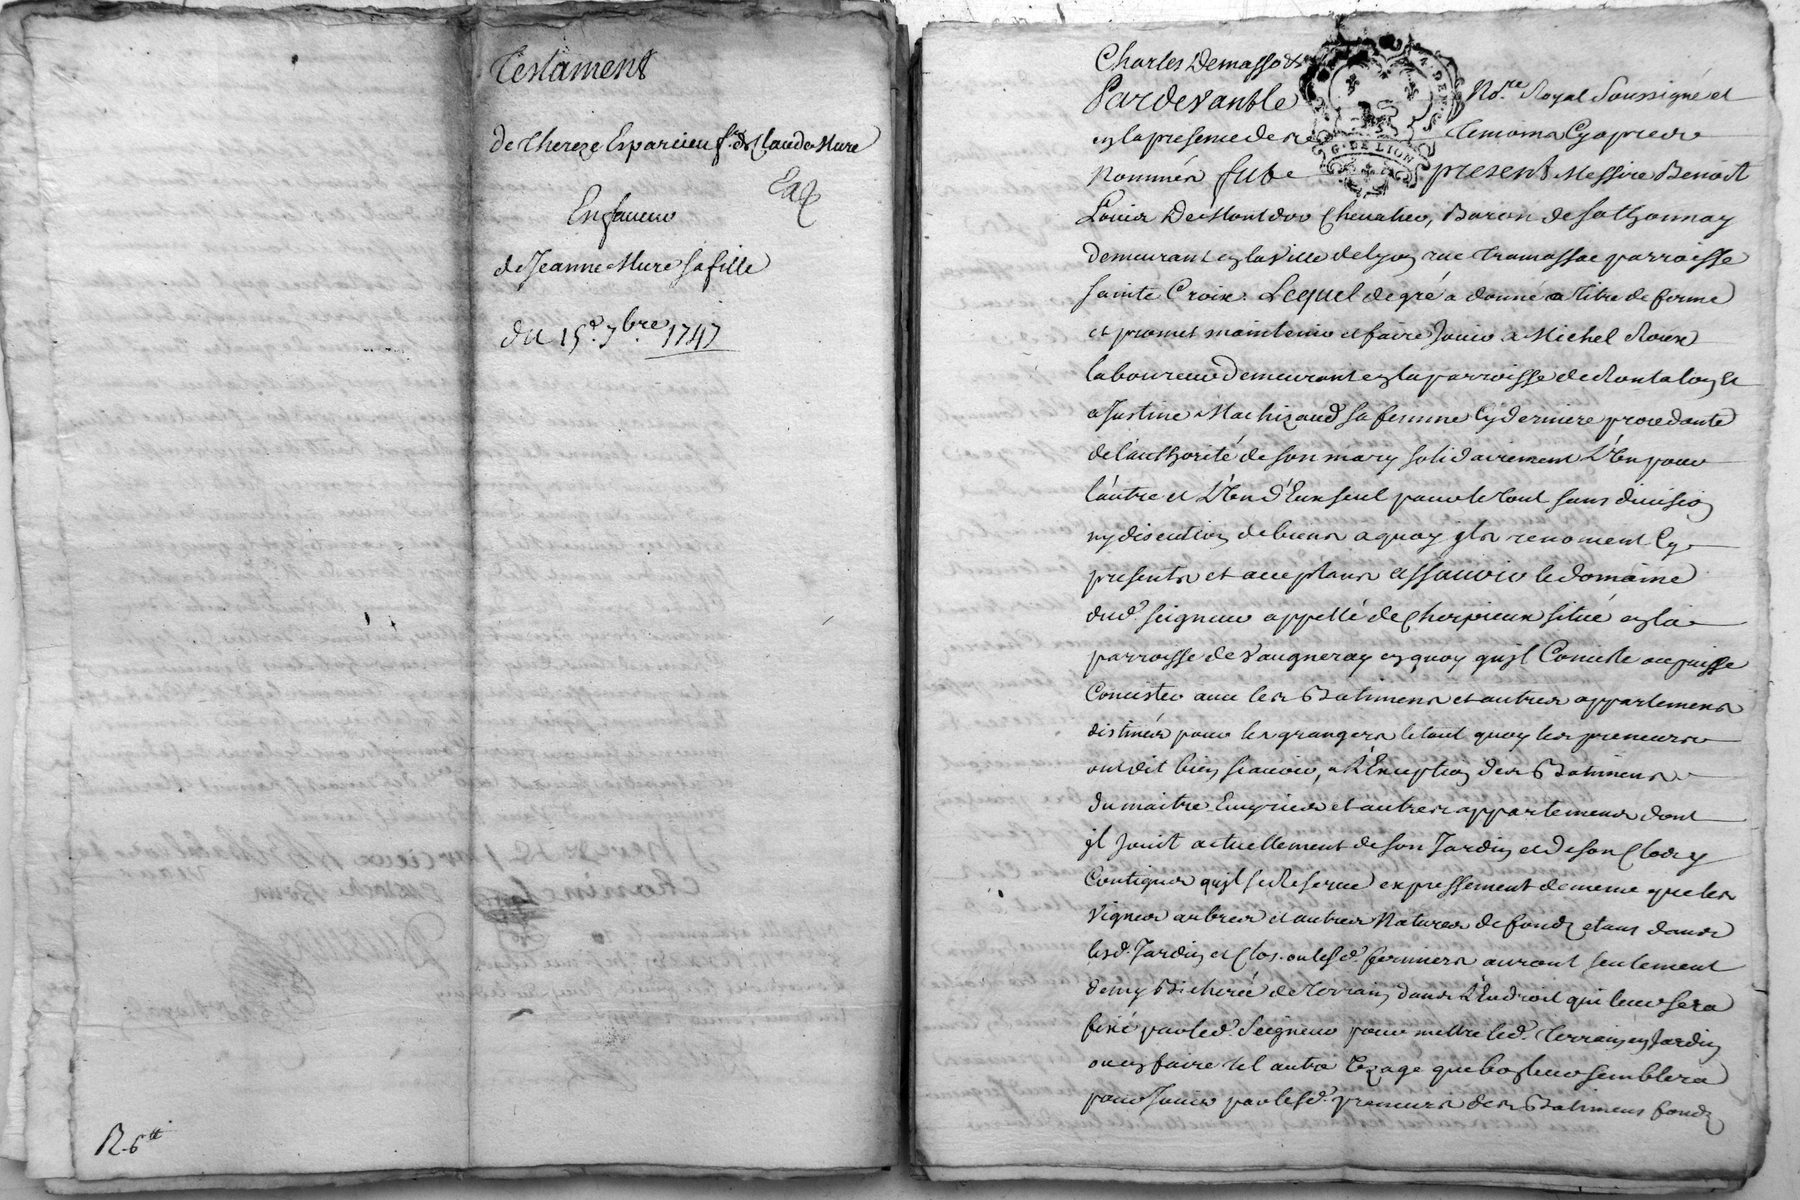 Testament
de Thereze Esparcieu f.e de Claude Mure
En faveur
de Jeanne Mure sa fille
du 15e. 7bre. 1747
R. 6tt
Charles Demasso
Pardevant le Nore. Royal Soussigné et
en la presence des temoins cy apres
Nommés fut present Messire Benoit
Louis De Montdor Chevalier, Baron de Sathonnay
demeurant en la ville de Lyon rue Tramassac parroisse
Sainte Croix. Lequel de gré a donné a titre de ferme
et promet maintenir et faire Jouir a Michel Roux
laboureur demeurant en la parroisse de Rontalon et
a Justine Machizaud sa femme Cy derniere procedante
de l'authorité de son mary solidairement L'Un pour
l'autre et L'Un d'Eux seul pour le tout sans division
ny discution de biens a quoy ils renoncent Cy
presents et acceptans assavoir le domaine
dud. seigneur appellé de Cherpieux situé en la
parroisse de Vaugneray en quoy qu'jl Conciste ou puisse
Concister avec les Batimens et autres appartemens
distinés pour les grangers le tout quoy les preneurs
ont dit bien scavoir, a L'Exception des Batimens
du maitre Ecuries et autres appartemens dont
jl Jouit actuellement de son Jardin et de son Clos y
Contigus qu'jl se Reserve expressement de meme que les
Vignes arbres et autres Natures de fonds etant dans
lesd. Jardin et Clos. ou lesd. fermiers auront seulement
demy Bicherée de terrain dans L'Endroit qui leur sera
fixé par led. Seigneur pour mettre led. terrain en Jardin
ou en faire tel autre Uzage que bon leur semblera
pour Jouir par lesd. preneurs des Batimens fonds
G. DE LION